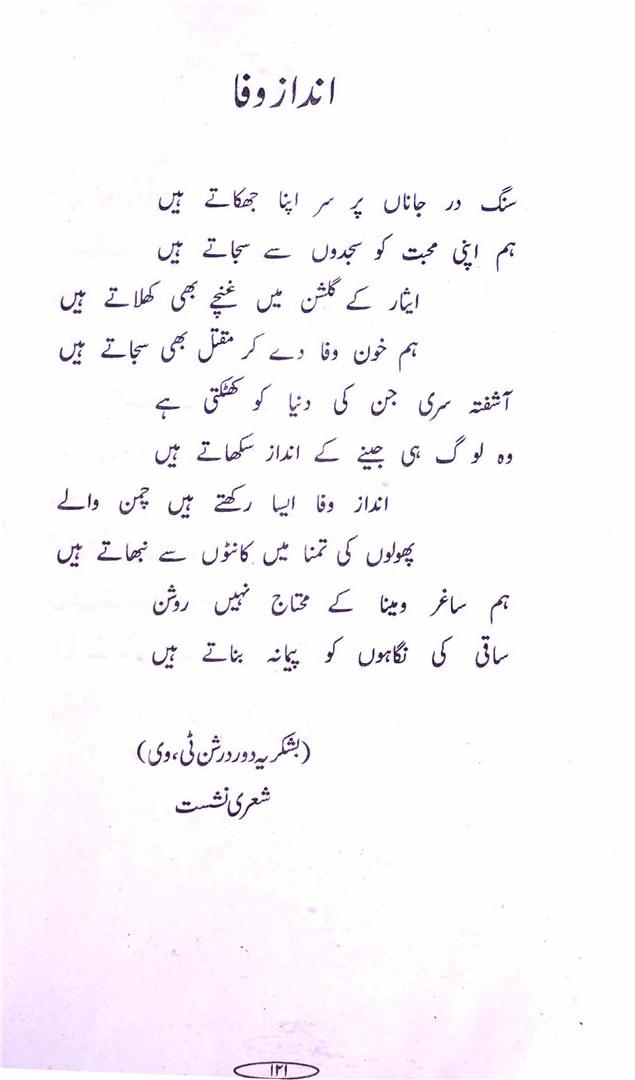 انداز وفا
سنگ در جاناں پر سر اپنا جھکاتے ہیں
ہم اپنی محبت کو سجدوں سے سجاتے ہیں
ایثار کے گلشن میں غنچے بھی کھلاتے ہیں
ہم خون وفا دے کر مقتل بھی سجاتے ہیں
آشفتہ سری جن کی دنیا کو کھٹکتی ہے
وہ لوگ ہی جینے کے انداز سکھاتے ہیں
انداز وفا ایسا رکھتے ہیں چمن والے
پھولوں کی تمنا میں کانٹوں سے نبھاتے ہیں
ہم ساغر ومینا کے محتاج نہیں روشن
ساقی کی نگاہوں کو پیمانہ بناتے ہیں
(بشکریہ دوردرشن ٹی، وی)
شعری نشست
۱۲۱